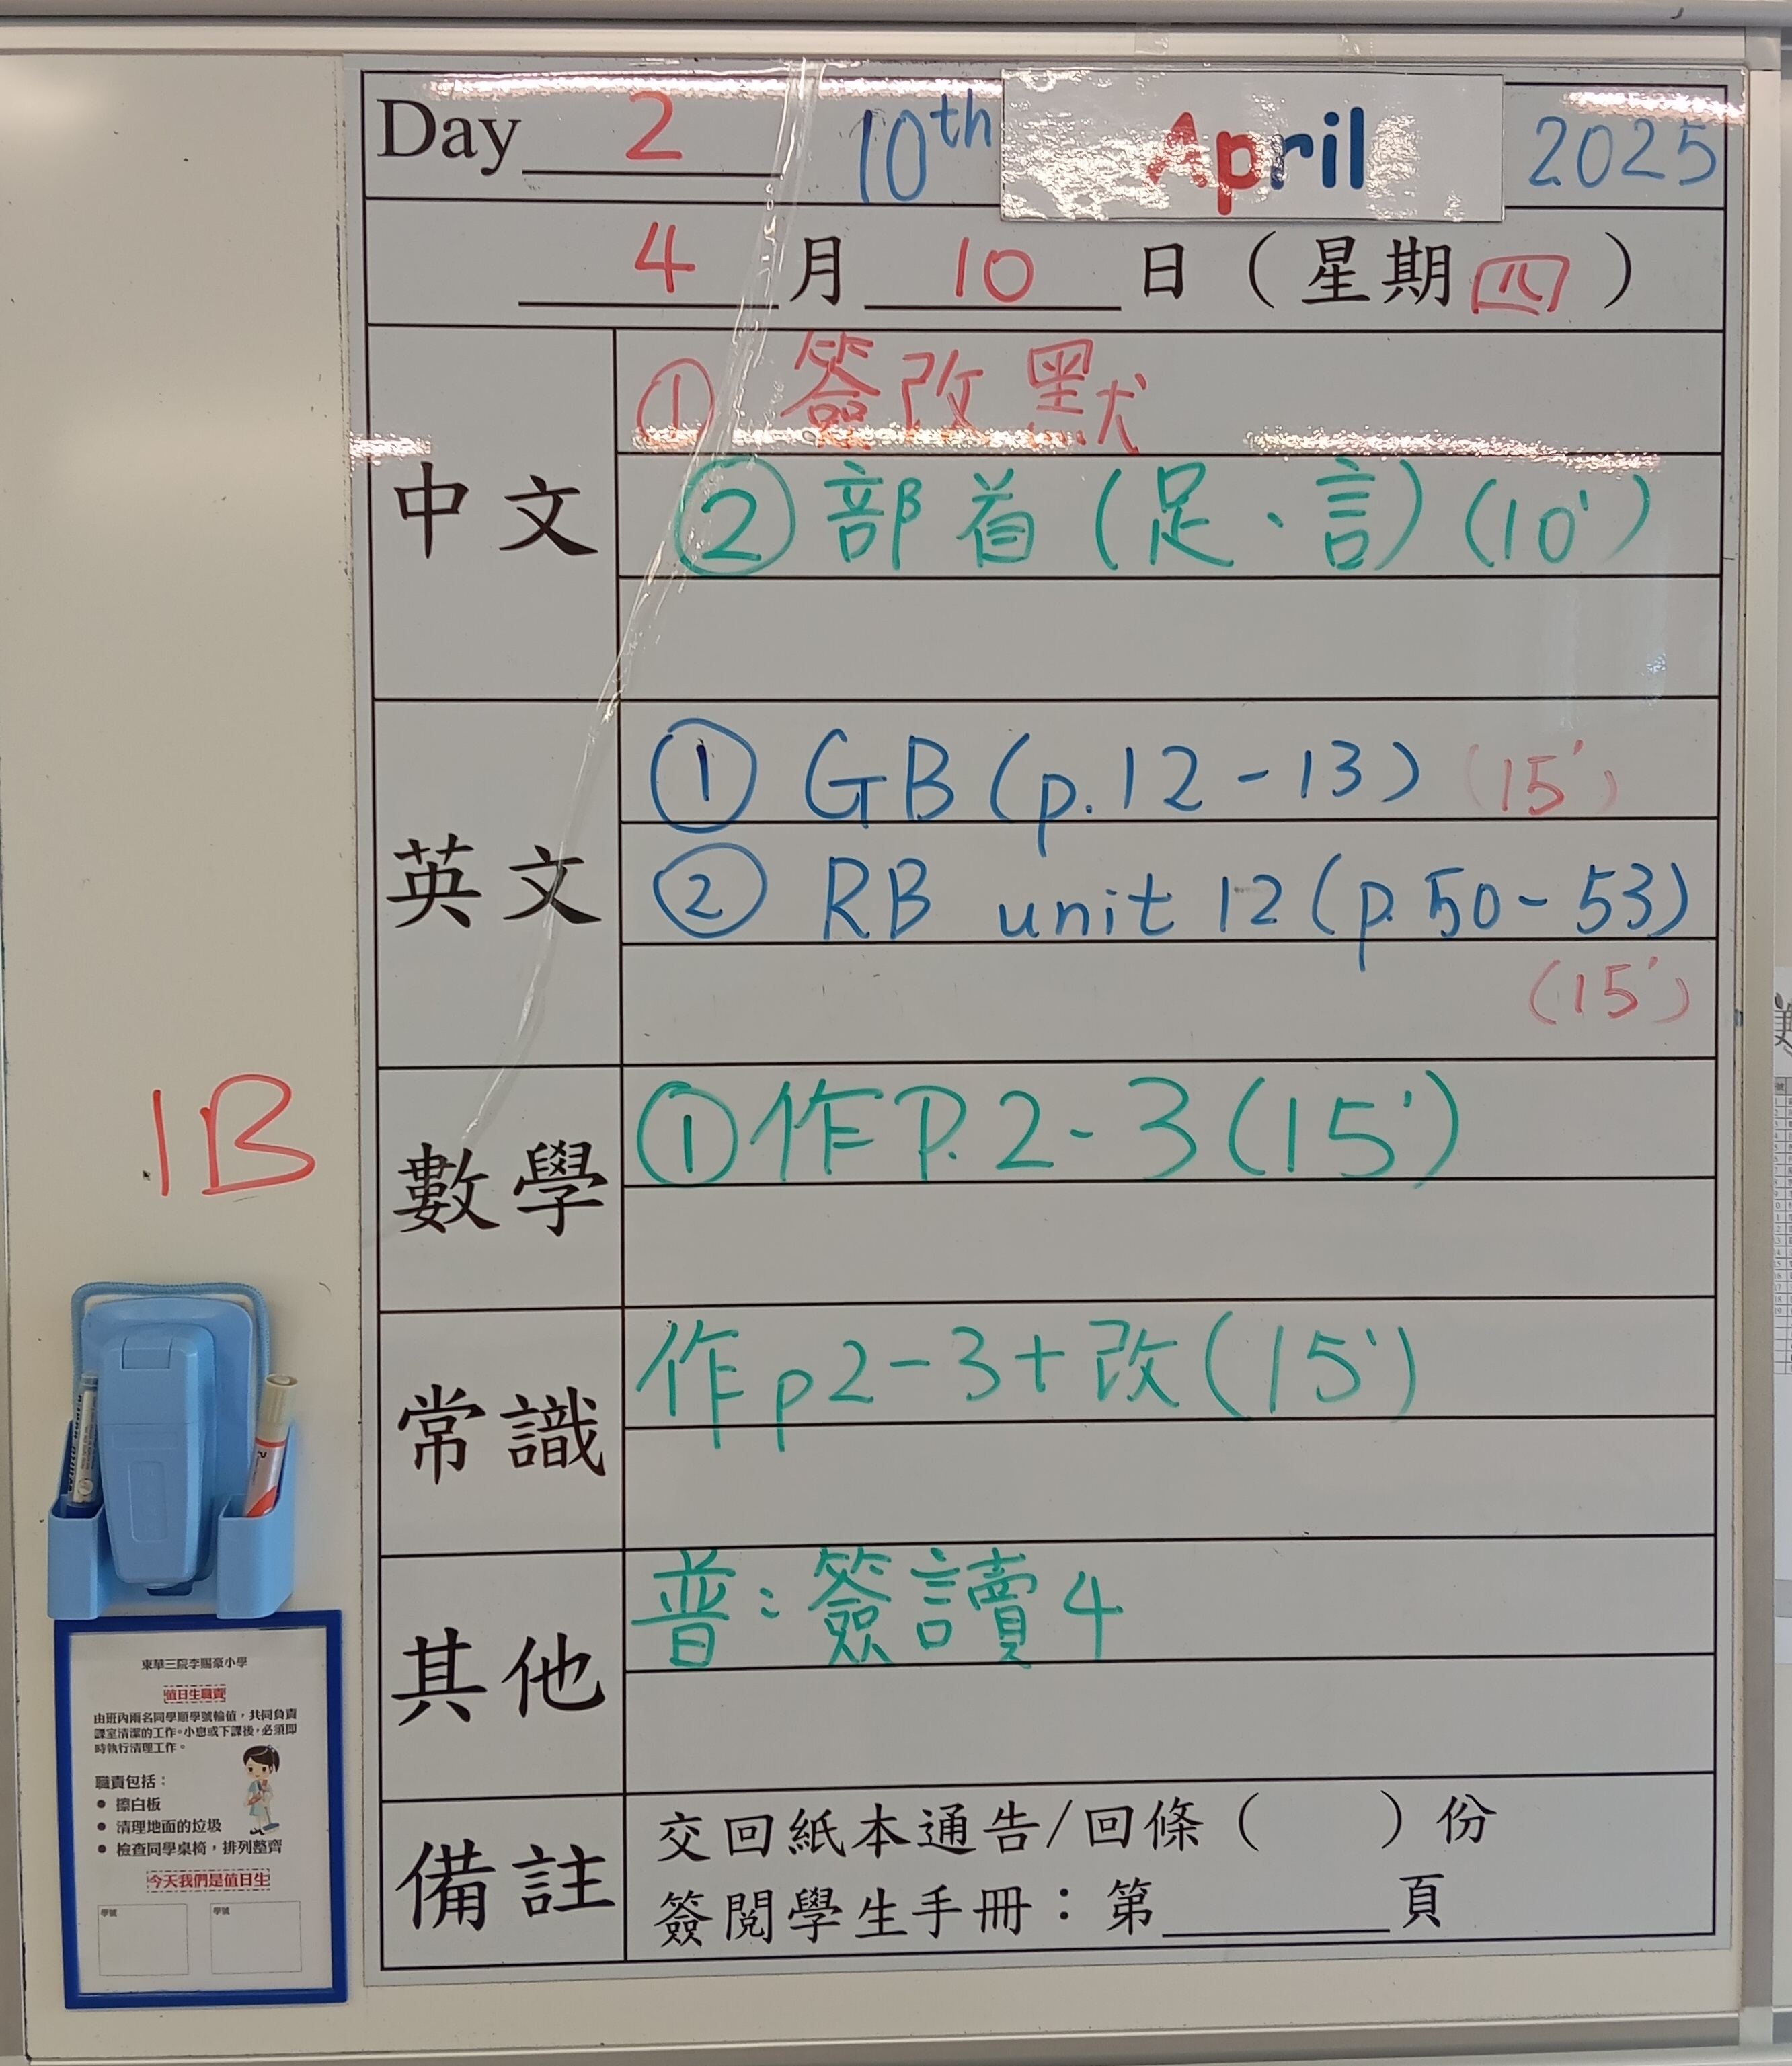 Day 2 10th April 2025
4 月 10 日 ( 星期四 )
中文
① 簽改默
② 部首 (足、言) (10')
英文
① GB (p.12-13) (15')
② RB unit 12 (p.50-53)
(15')
數學
① 作 P.2-3 (15')
常識
作 p2-3+改 (15')
其他
普：簽讀4
備註
交回紙本通告/回條 ( ) 份
簽閱學生手冊：第______頁
1B
東華三院李賜豪小學
值日生職責
由班內兩名同學順學號輪值，共同負責
課室清潔的工作。小息或下課後，必須即
時執行清理工作。
職責包括：
● 擦白板
● 清理地面的垃圾
● 檢查同學桌椅，排列整齊
今天我們是值日生
學號 學號